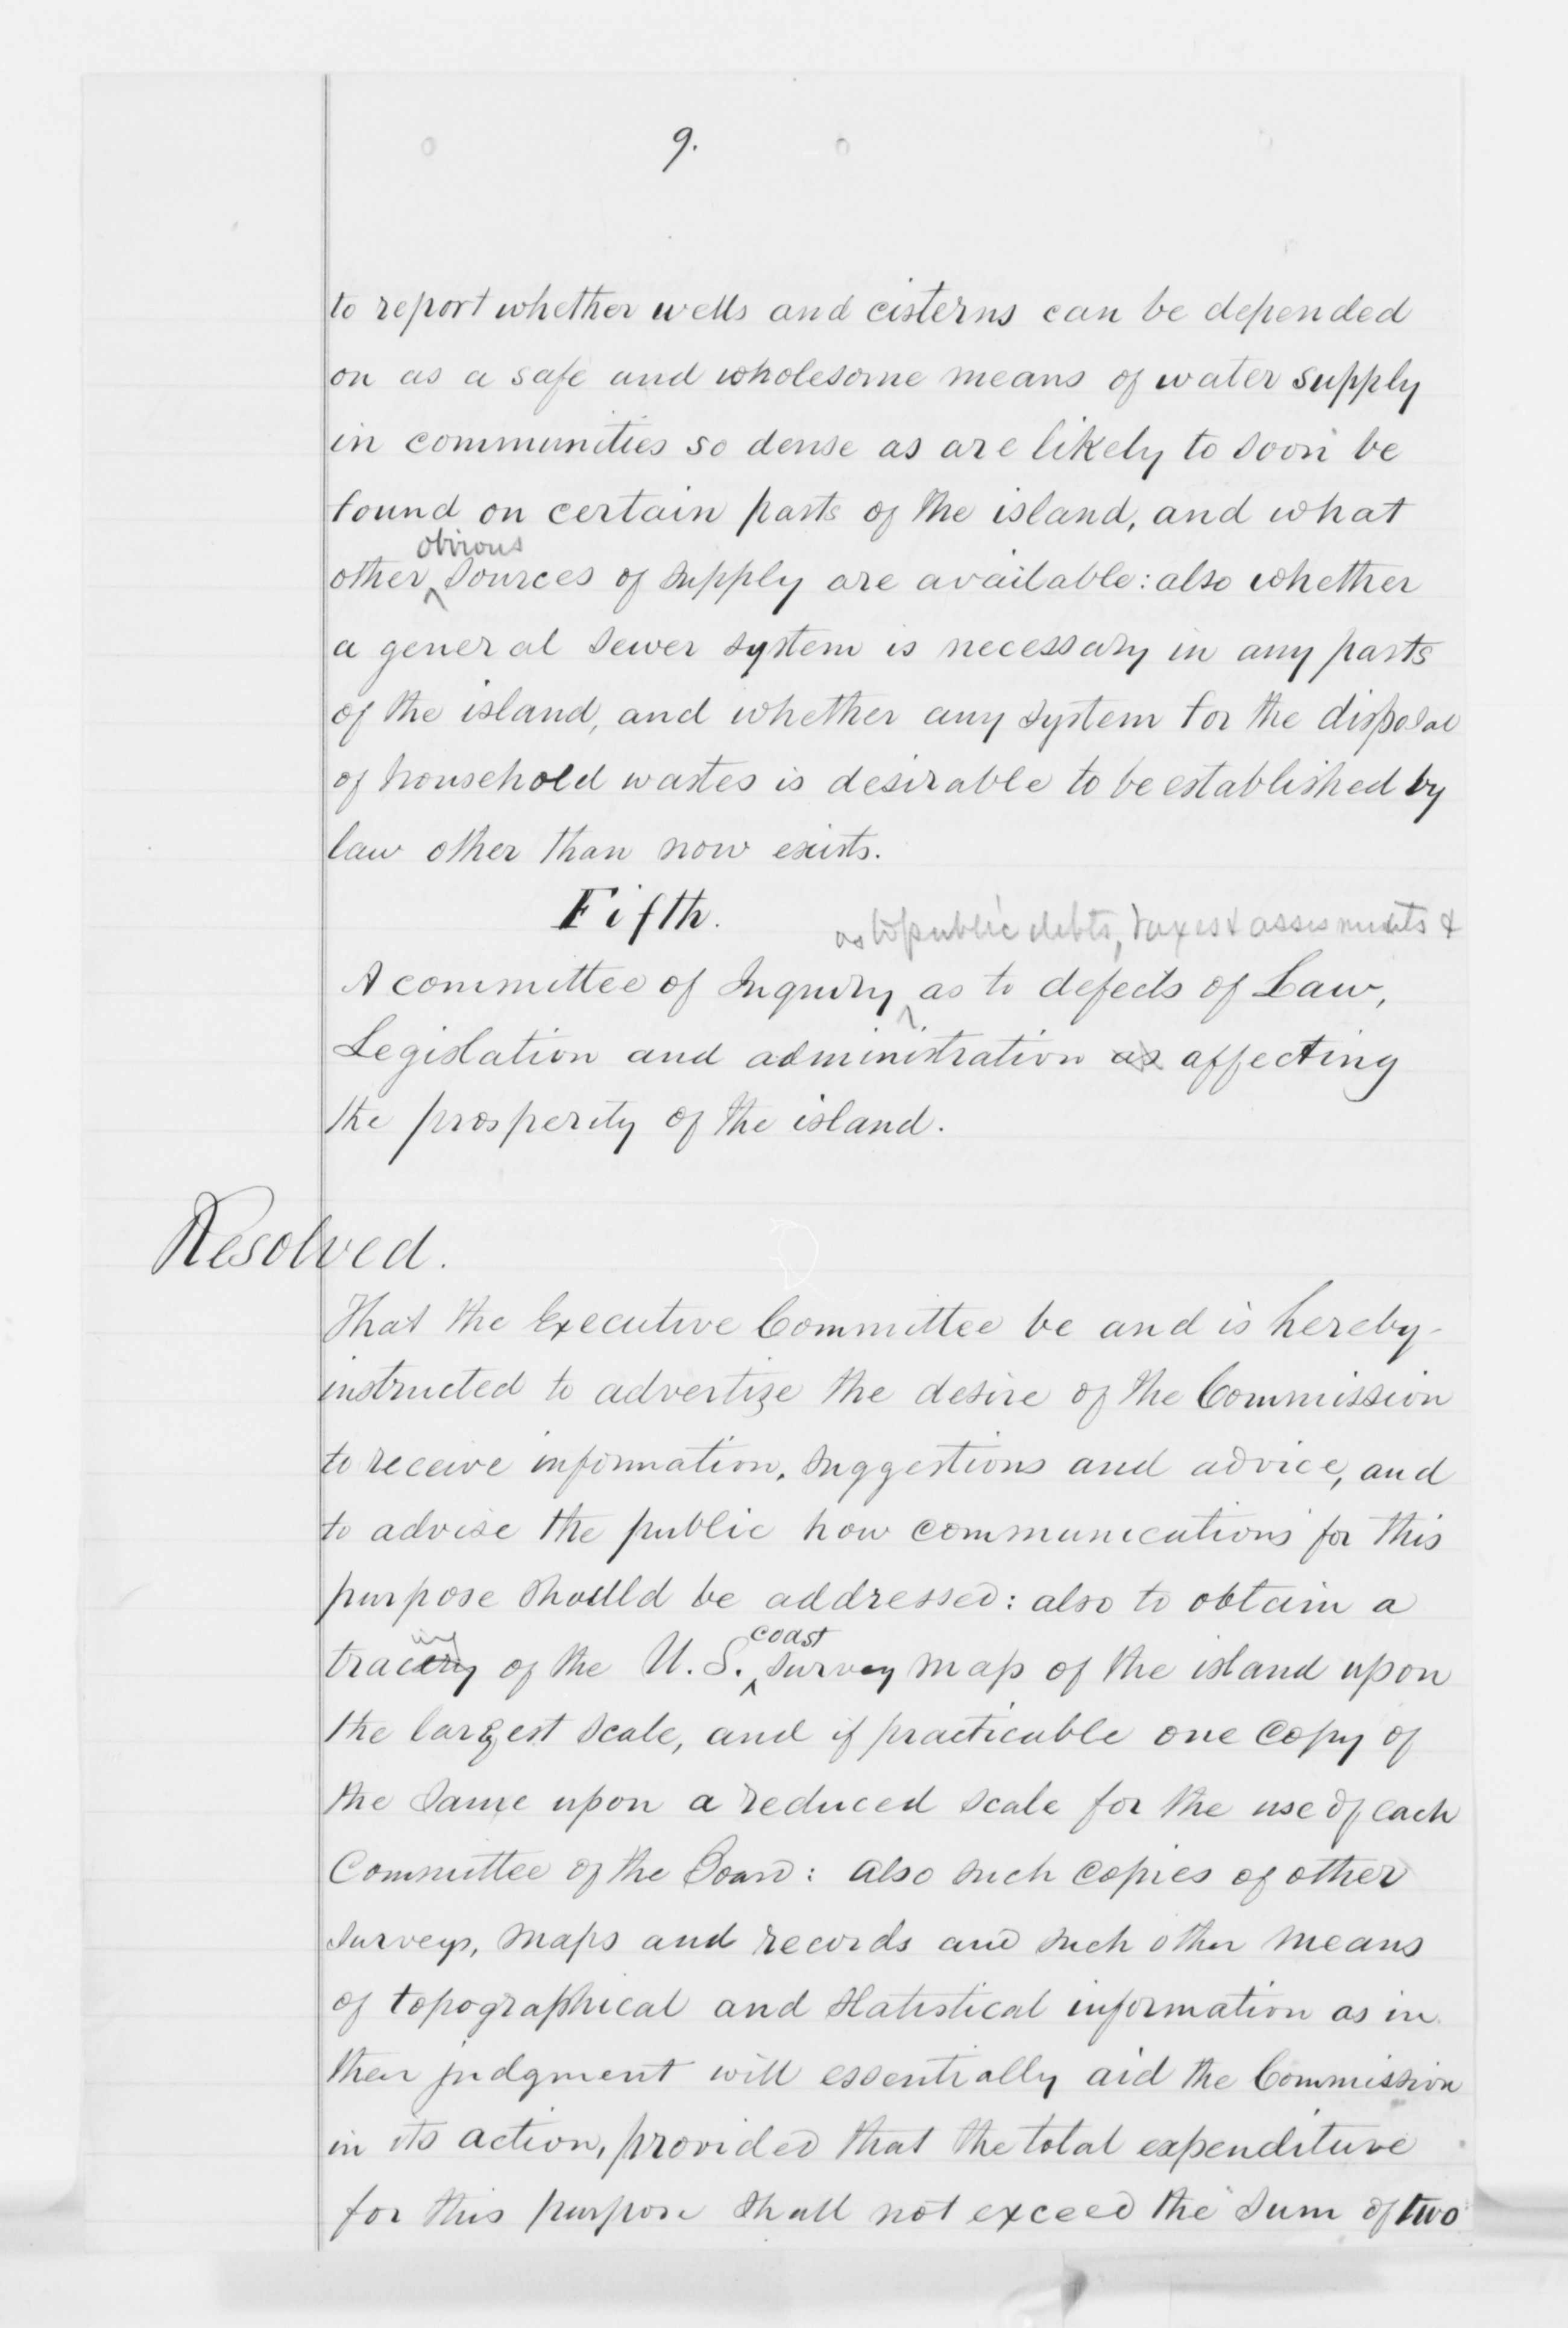 9.
to report whether wells and cisterns can be depended
on as a safe and wholesome means of water supply
in communities so dense as are likely to soon be
found on certain parts of the island, and what
obvious
other sources of supply are available: also whether
a general sewer system is necessary in any parts
of the island, and whether any system for the disposal
of household wastes is desirable to be established by
law other than now exists.
Fifth.
as to public debts, taxes & assesments &
A committee of Inquiry as to defects of Law,
Legislation and administration as affecting
the prosperity of the island.
Resolved.
That the Executive Committee be and is hereby
instructed to advertize the desire of the Commission
to receive information, suggestions and advice, and
to advise the public how communications for this
purpose should be addressed: also to obtain a
ing coast
tracery of the U.S. survey map of the island upon
the largest scale, and if practicable one copy of
the same upon a reduced scale for the use of each
Committee of the Board: also such copies of other
surveys, maps and records and such other means
of topographical and statistical information as in
their judgment will essentially aid the Commission
in its action, provided that the total expenditure
for this purpose shall not exceed the sum of two